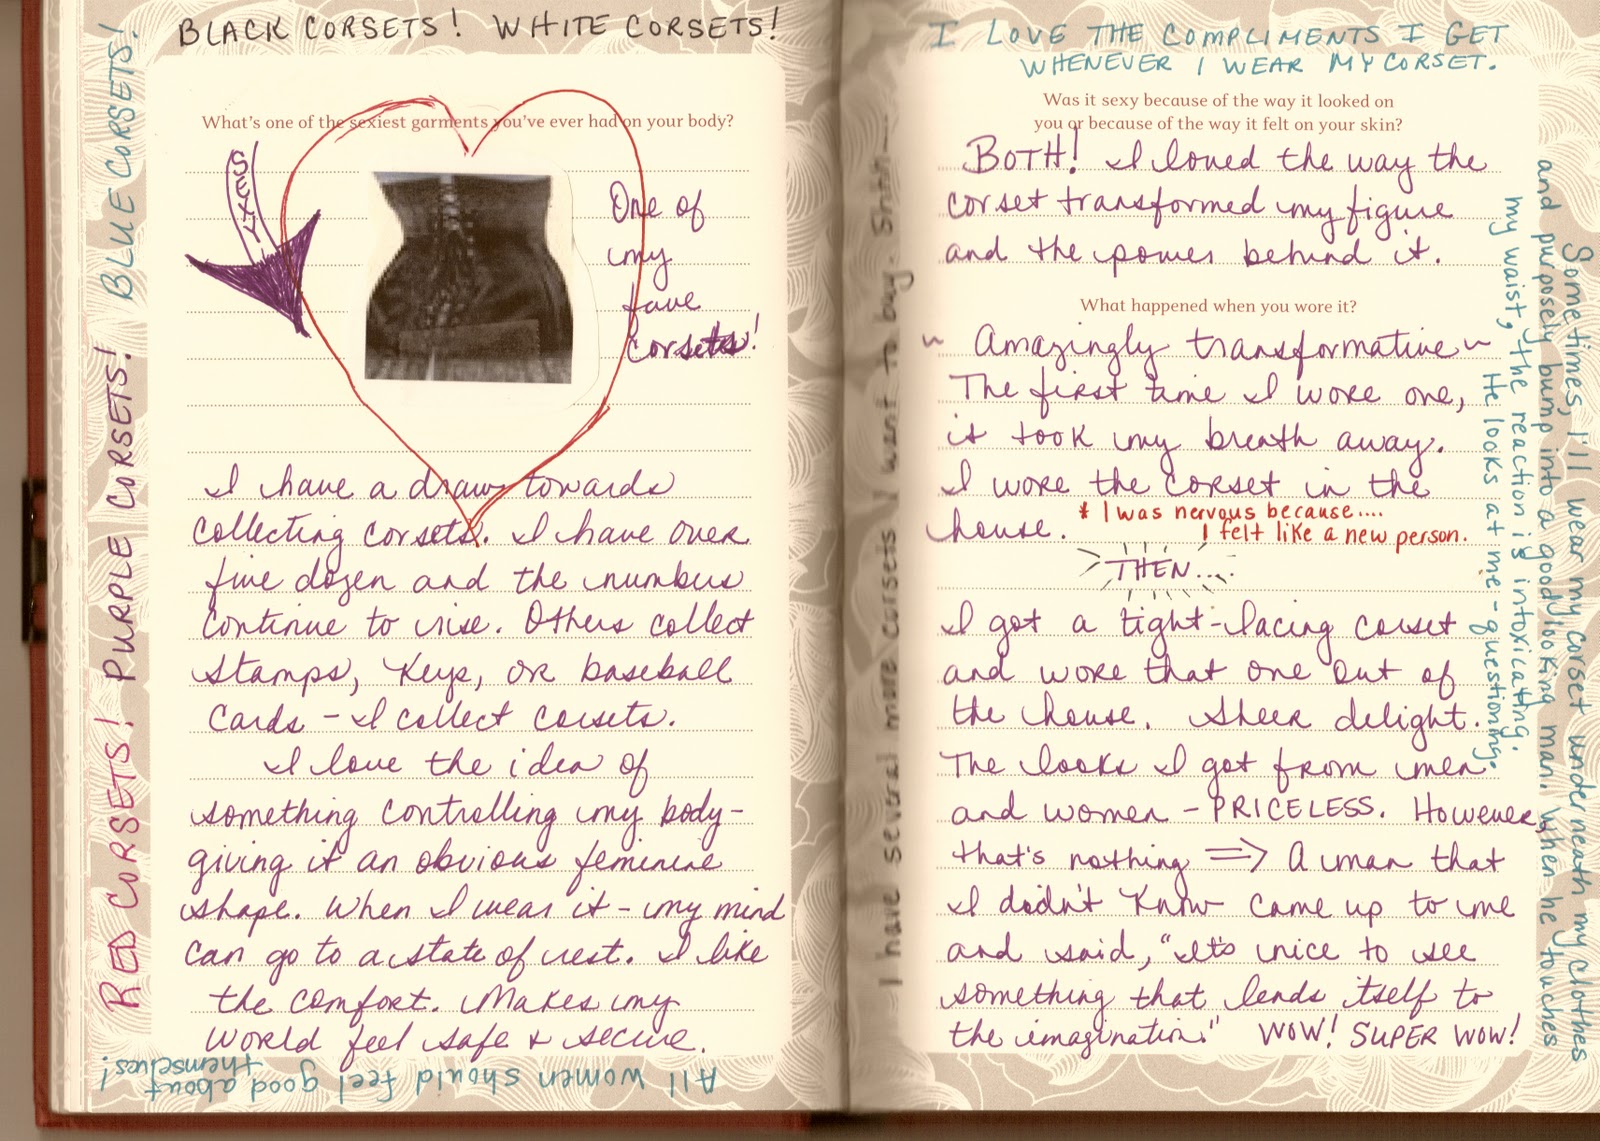 BLACK CORSETS! WHITE CORSETS!
BLUE CORSETS!
PURPLE CORSETS!
RED CORSETS!
What's one of the sexiest garments you've ever had on your body?
SEXY
One of
my
fave
corsets!
I have a draw towards
collecting corsets. I have over
five dozen and the numbers
continue to rise. Others collect
stamps, keys, or baseball
cards – I collect corsets.
I love the idea of
something controlling my body –
giving it an obvious feminine
shape. When I wear it – my mind
can go to a state of rest. I like
the comfort. Makes my
world feel safe & secure.
All women should feel good about
themselves!
I have several more corsets I want to buy. Shhh
I LOVE THE COMPLIMENTS I GET
WHENEVER I WEAR MY CORSET.
Was it sexy because of the way it looked on
you or because of the way it felt on your skin?
BOTH! I loved the way the
corset transformed my figure
and the power behind it.
What happened when you wore it?
~ Amazingly transformative ~
The first time I wore one,
it took my breath away.
I wore the corset in the
house. * I was nervous because....
I felt like a new person.
THEN...
I got a tight-lacing corset
and wore that one out of
the house. Sheer delight.
The looks I got from men
and women – PRICELESS. However,
that's nothing => A man that
I didn't know came up to me
and said, "It's nice to see
something that lends itself to
the imagination." WOW! SUPER WOW!
Sometimes, I'll wear my corset underneath my clothes
and purposely bump into a good looking man. When he touches
my waist, the reaction is intoxicating.
He looks at me – questioning.